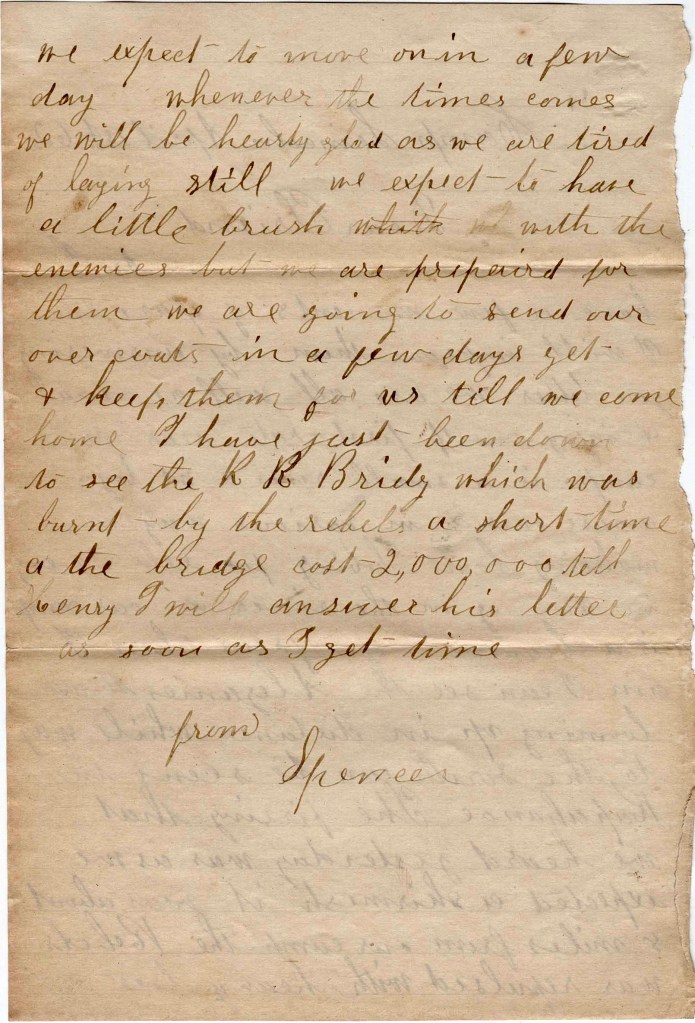 we expect to move on in a few
day whenever the times comes
we will be hearty glad as we are tired
of laying still we expect to have
a little brush whith with the
enemies but we are prepaird for
them we are going to send our
over coats in a few days get
& keep them for us till we come
home I have just been down
to see the R R Bridg which was
burnt by the rebels a short time
a the bridge cost 2,000,000 tell
Henry I will answer his letter
as soon as I get time
from
Spencer